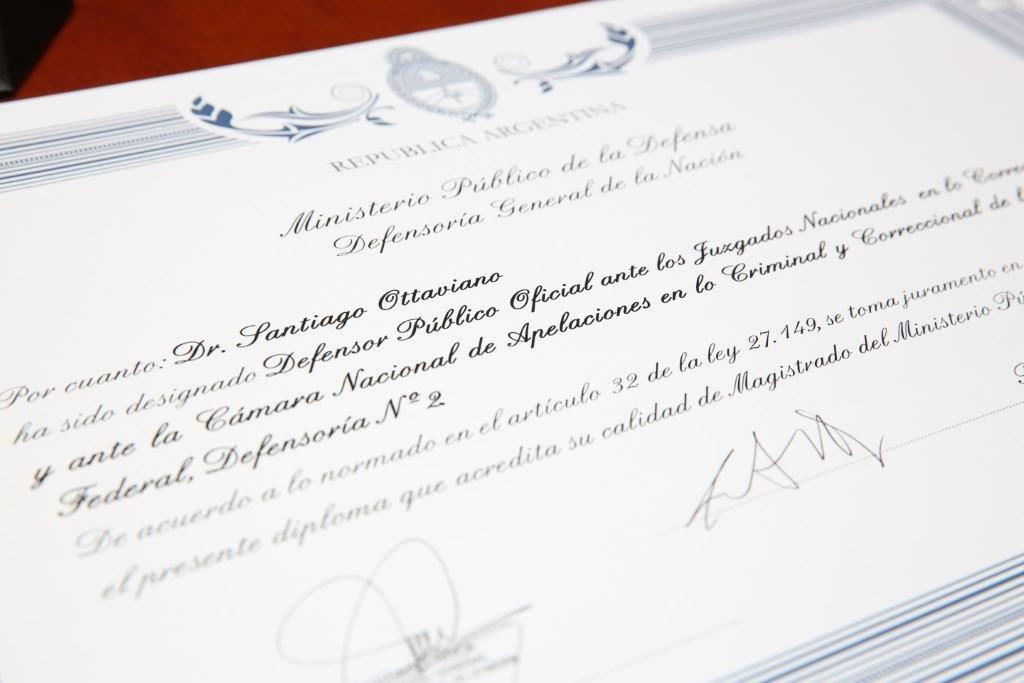 REPUBLICA ARGENTINA
Ministerio Público de la Defensa
Defensoría General de la Nación
Por cuanto: Dr. Santiago Ottaviano
ha sido designado Defensor Público Oficial ante los Juzgados Nacionales en lo
y ante la Cámara Nacional de Apelaciones en lo Criminal y Correccional de
Federal, Defensoría Nº 2
De acuerdo a lo normado en el artículo 32 de la ley 27.149, se toma juramento en
el presente diploma que acredita su calidad de Magistrado del Ministerio